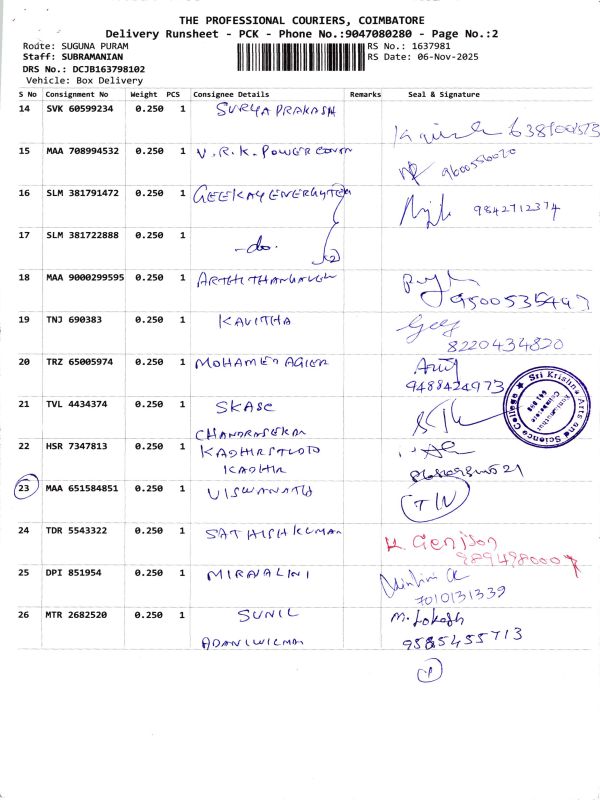 THE PROFESSIONAL COURIERS, COIMBATORE
Delivery Runsheet - PCK - Phone No.:9047080280 - Page No.:2
Route: SUGUNA PURAM RS No.: 1637981
Staff: SUBRAMANIAN RS Date: 06-Nov-2025
DRS No.: DCJB163798102
Vehicle: Box Delivery
S No Consignment No Weight PCS Consignee Details Remarks Seal & Signature
14 SVK 60599234 0.250 1 SURYA PRAKASH
15 MAA 708994532 0.250 1 V.R.K. POWER
9600556020
16 SLM 381791472 0.250 1 GEEKAY ENERGYTEK
9842712374
17 SLM 381722888 0.250 1 -do-
18 MAA 9000299595 0.250 1
19 TNJ 690383 0.250 1 KAVITHA
8220434820
20 TRZ 65005974 0.250 1 MOHAMED
9488424973
21 TVL 4434374 0.250 1 SKASC
Sri Krishna Arts and Science College
Coimbatore
CHANDRASEKAR
22 HSR 7347813 0.250 1
KADHIR
23 MAA 651584851 0.250 1 VISWANATH
24 TDR 5543322 0.250 1 SATHISH KUMAR
25 DPI 851954 0.250 1 MIRNALINI
7010131339
26 MTR 2682520 0.250 1 SUNIL M. Lokesh
ADANI WILMAR 9585455713